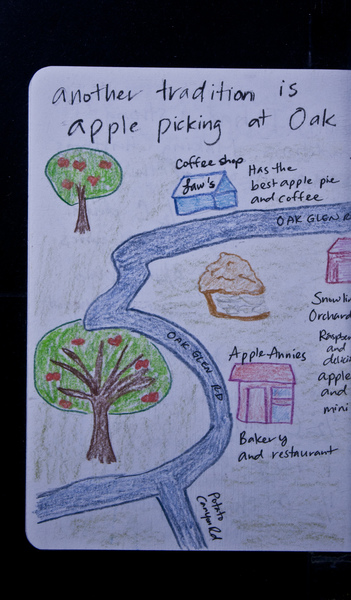 another tradition is
apple picking at Oak
Coffee shop
Law's
Has the
best apple pie
and coffee
OAK GLEN R
Snowlin
Orchard
Raspbe
and
delici
apple
and
mini
OAK GLEN RD
Apple Annies
Bakery
and restaurant
Potato
Canyon Rd